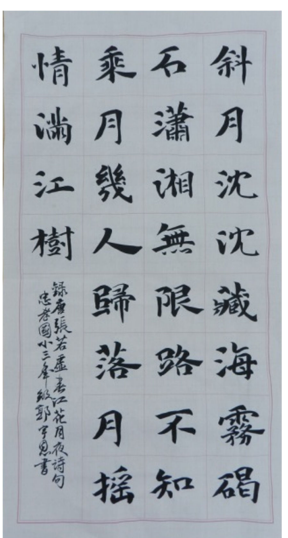 斜月沈沈藏海霧碣
石瀟湘無限路不知
乘月幾人歸落月搖
情滿江樹
錄唐張若虛春江花月夜詩句
忠孝國小三年級郭宇恩書